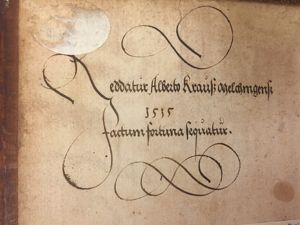 Reddatur Alberto Krauß Melchingensi
1515
Factum fortuna sequatur.